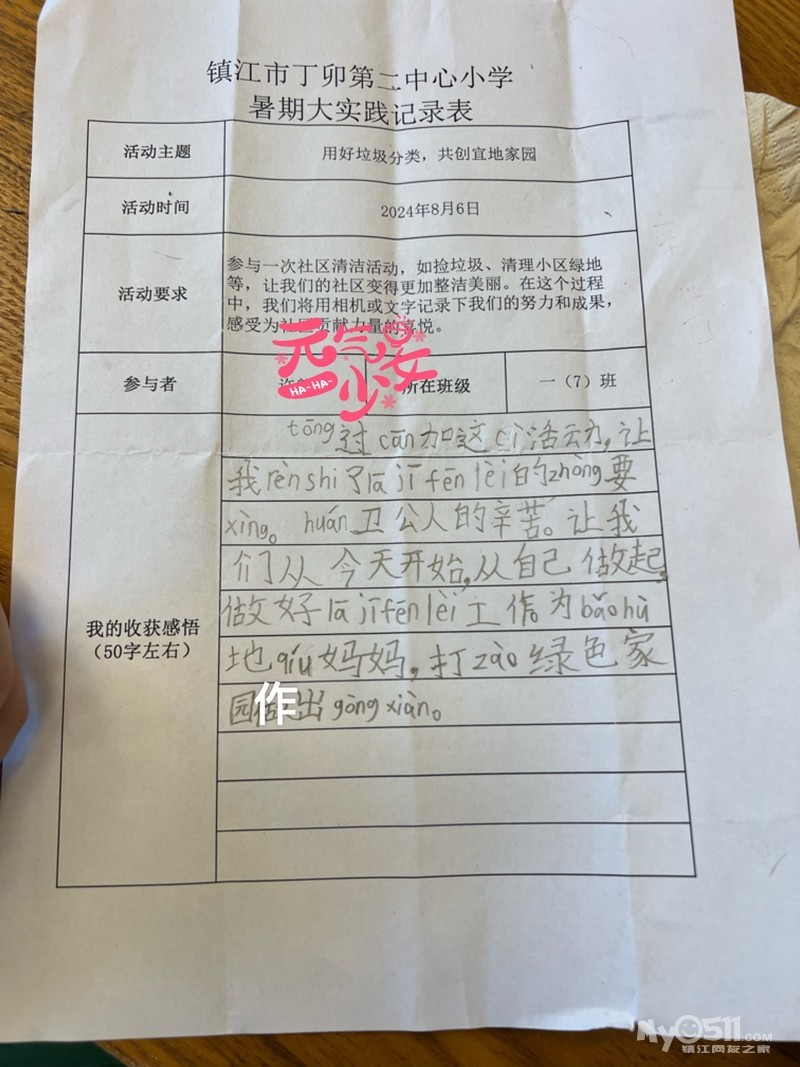 镇江市丁卯第二中心小学
暑期大实践记录表
活动主题 用好垃圾分类，共创宜地家园
活动时间 2024年8月6日
活动要求
参与一次社区清洁活动，如捡垃圾、清理小区绿地
等，让我们的社区变得更加整洁美丽。在这个过程
中，我们将用相机或文字记录下我们的努力和成果，
感受为社区贡献力量的喜悦。
元气少女
HA-HA-
参与者 许 所在班级 一（7）班
我的收获感悟
（50字左右）
tōng过cān加这cì活动，让
我rènshi了lā jī fēn lèi的zhòng要
xìng。huán卫公人的辛苦。让我
们从今天开始，从自己做起，
做好lā jī fēn lèi工作为bǎohù
地qiú妈妈，打zào绿色家
园作出gòngxiàn。
My0511.COM
镇江网友之家